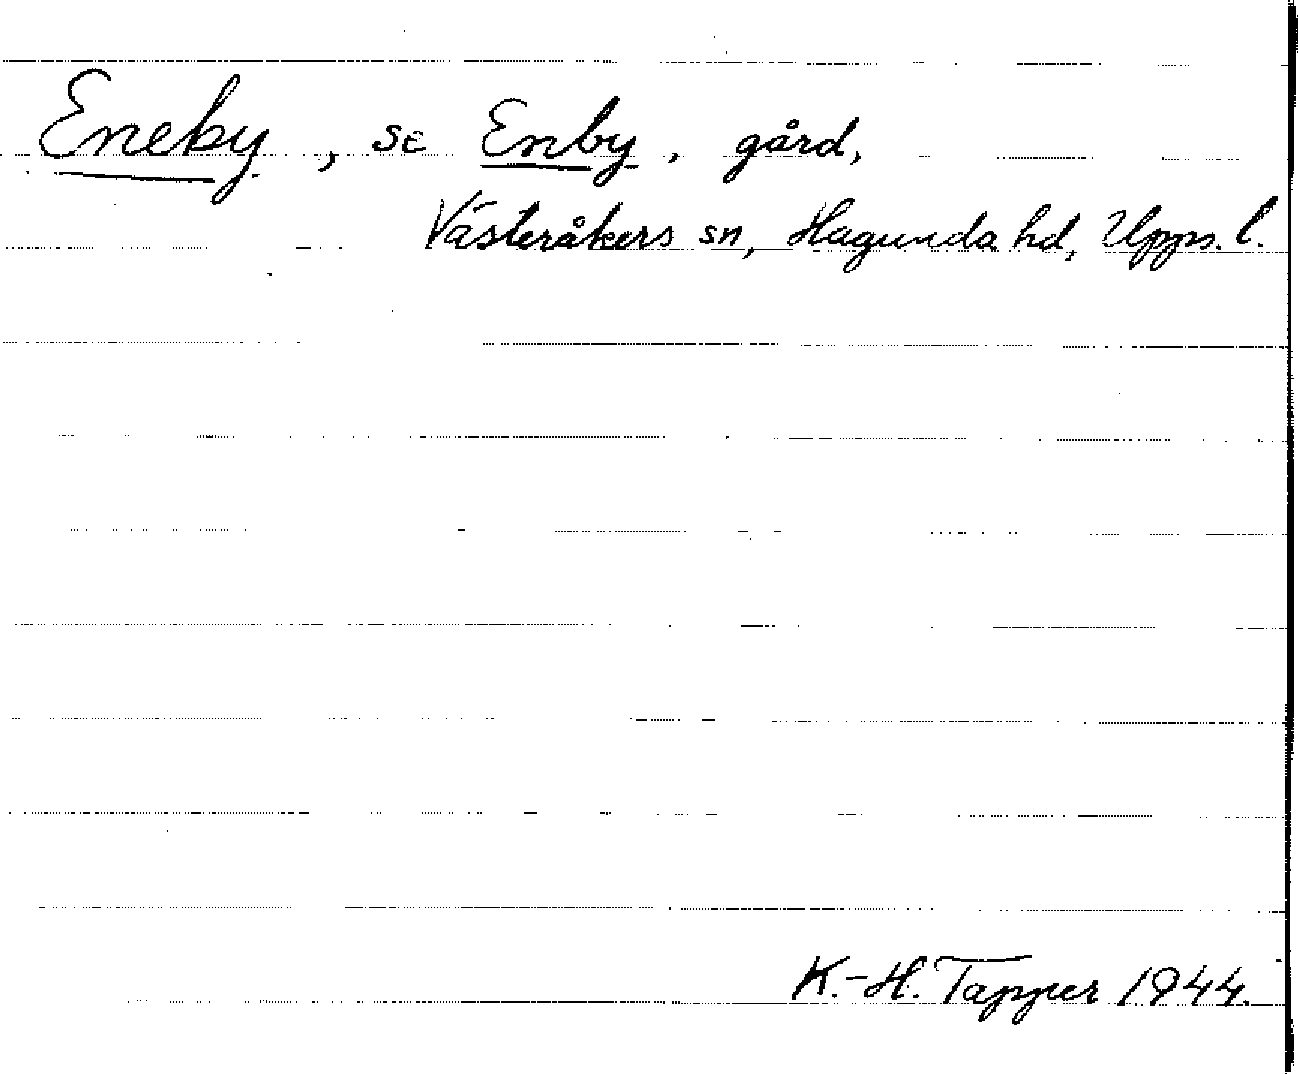 Eneby, se Enby, gård,
Västeråkers sn, Hagunda hd, Upps. l.
K.-H. Tapper 1944.